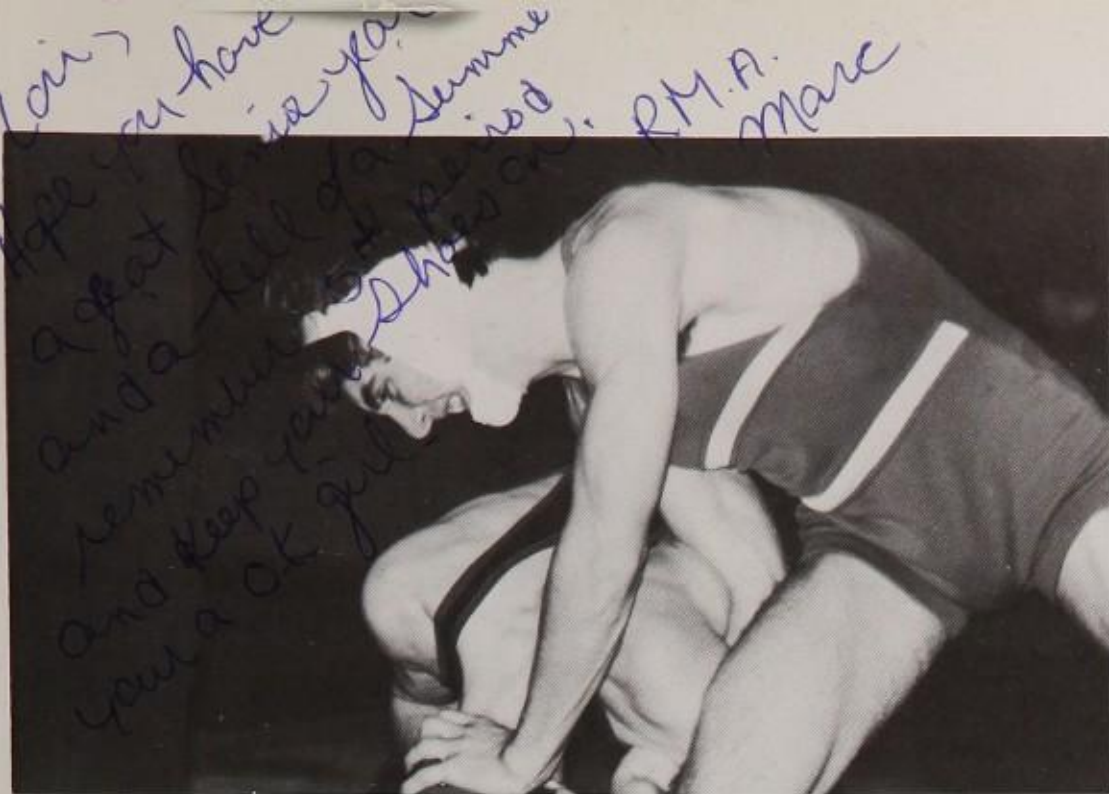 Lori,
Hope you have
a great Senior year
and a hell of a Summe
remember period
and keep your shoes on.
your a ok girl
R.M.A.
Marc